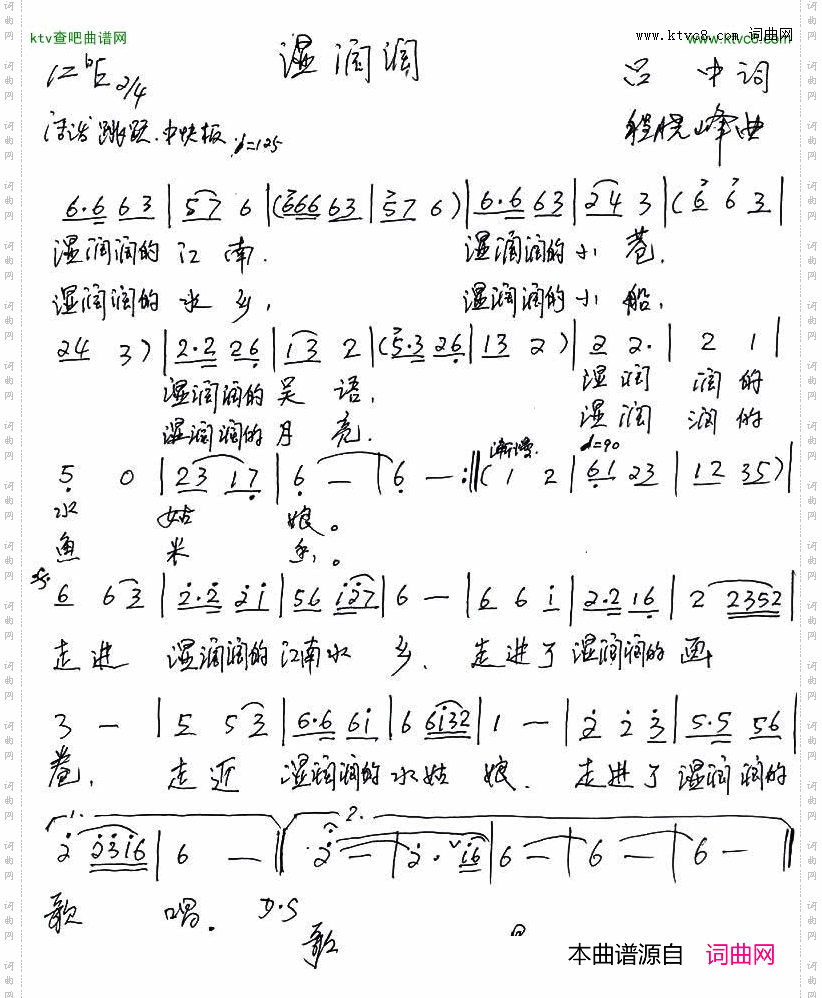 ktv查吧曲谱网
www.ktvc8.com 词曲网
湿润润
1=♭E 2/4
吕中词
活泼 跳跃.中快板 ♩=125
程晓峰曲
6·6 63 | 57 6 | (666 63 | 57 6) | 6·6 63 | 24 3 | (6 6 3 |
湿润润的江南. 湿润润的小巷,
湿润润的水乡, 湿润润的小船,
24 3) | 2·2 26 | 13 2 | (5·3 26 | 13 2) | 2 2· | 2 1 |
湿润润的吴语, 湿润润的
湿润润的月亮. 湿润润的
渐慢 ♩=90
5 0 | 23 17 | 6 — | 6 — :‖ (1 2 | 61 23 | 12 35) |
水姑娘。
鱼米乡。
6 63 | 2·2 21 | 56 127 | 6 — | 6 6 1 | 2·2 16 | 2 2352 |
走进湿润润的江南水乡. 走进了湿润润的画
3 — | 5 53 | 6·6 61 | 6 6132 | 1 — | 2 2 3 | 5·5 56 |
卷, 走近湿润润的水姑娘. 走进了湿润润的
1. 2.
2 2316 | 6 — ‖ 2 — | 2· 16 | 6 — | 6 — | 6 — ‖
歌唱. D.S
歌
本曲谱源自 词曲网